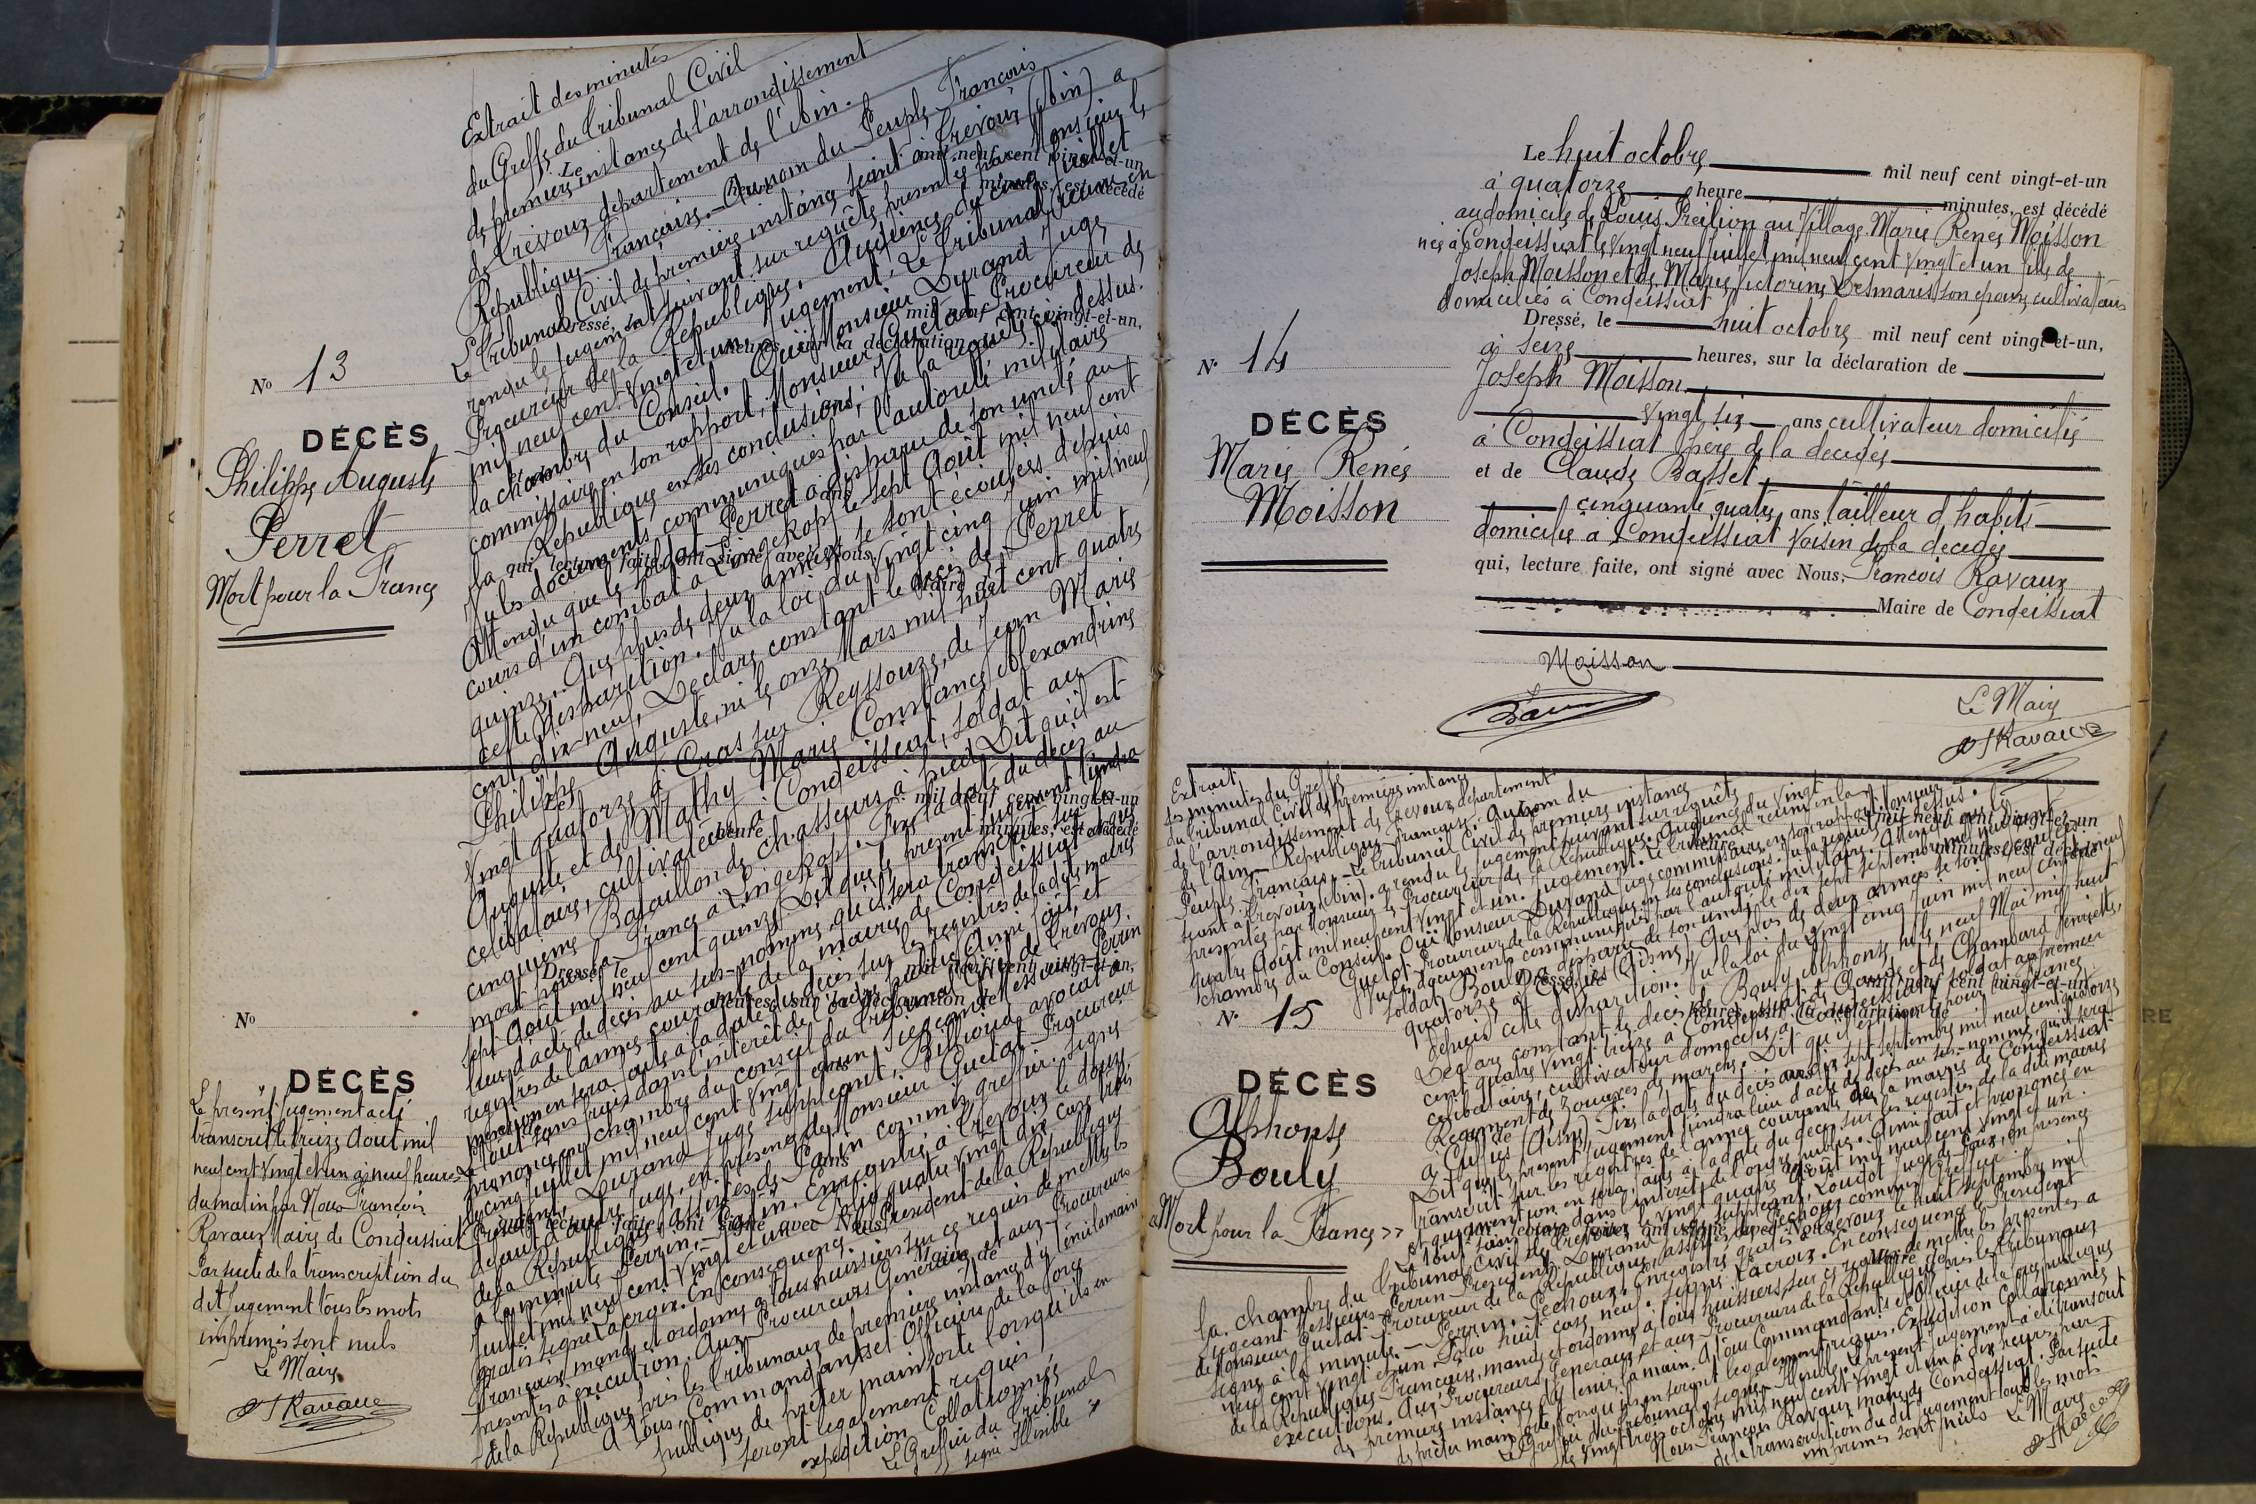 Extrait des minutes
du Greffe du Tribunal Civil
de première instance de l'arrondissement
de Trévoux département de l'Ain.
République Française. Au nom du Peuple Français
Le Tribunal Civil de première instance séant à Trévoux (Ain) a
rendu le jugement suivant sur requête présentée par Monsieur le
Procureur de la République. Audience du cinq Juillet
mil neuf cent vingt et un. Jugement. Le Tribunal réuni en
la chambre du Conseil. Ouï Monsieur Durand Juge
commissaire en son rapport, Monsieur Guetat Procureur de
la République en ses conclusions; Vu la requête ci-dessus.
Vu les documents communiqués par l'autorité militaire
Attendu que le soldat Perret a disparu de son unité au
cours d'un combat à Lingekopf le sept Août mil neuf cent
quinze. Que plus de deux années se sont écoulées depuis
cette disparition. Vu la loi du vingt cinq Juin mil neuf
cent dix-neuf, Déclare constant le décès de Perret
Philippe Auguste, né le onze Mars mil huit cent quatre
vingt quatorze à Cras sur Reyssouze, de Jean Marie
Auguste et de Mathy Marie Constance Alexandrine
célibataire, cultivateur à Condeissiat, soldat au
cinquième Bataillon de chasseurs à pied Dit qu'il est
mort pour la France à Lingekopf. Fixe la date du décès au
sept Août mil neuf cent quinze Dit que le présent jugement tiendra
lieu d'acte de décès au sus-nommé, qu'il sera transcrit sur les
registres de l'année courante de la mairie de Condeissiat et que
mention en sera faite à la date du décès sur les registres de la dite mairie
Le tout sans frais dans l'intérêt de l'ordre public Ainsi fait et
prononcé en chambre du conseil du Tribunal Civil de Trévoux
le cinq Juillet mil neuf cent vingt et un. Jugeant Messieurs Perrin
Président, Durand Juge suppléant, Billioud avocat
de la République, assistés de Patin commis greffier. Signé
à la minute Perrin. Patin. Enregistré à Trévoux le douze
Juillet mil neuf cent vingt et un folio quatre vingt dix case trois
gratis signé Lacroix. En conséquence le Président de la République
Française mande et ordonne à tous huissiers sur ce requis de mettre les
présentes à exécution. Aux Procureurs Généraux et aux Procureurs
de la République près les Tribunaux de première instance d'y tenir la main
A tous Commandants et Officiers de la force
publique de prêter main forte lorsqu'ils en
seront légalement requis,
expédition Collationnée
Le Greffier du Tribunal
signé Illisible
Le
mil neuf cent vingt-et-un
heure
minutes, est décédé
Dressé, le
mil neuf cent vingt-et-un,
heures, sur la déclaration de
ans
qui, lecture faite, ont signé avec Nous,
Maire de
No 13
DÉCÈS
Philippe Auguste
Perret
Mort pour la France
mil neuf cent vingt-et-un
heure
minutes, est décédé
Dressé, le
mil neuf cent vingt-et-un,
heures, sur la déclaration de
ans
qui, lecture faite, ont signé avec Nous,
Maire de
No
DÉCÈS
Le présent jugement a été
transcrit le treize Août mil
neuf cent vingt et un à neuf heures
du matin par Nous François
Ravaux Maire de Condeissiat
Par suite de la transcription du
dit jugement tous les mots
imprimés sont nuls
Le Maire
F Ravaux
Le huit octobre mil neuf cent vingt-et-un
à quatorze heure minutes, est décédé
au domicile de Louis Preilion au Village Marie Renée Moisson
née à Condeissiat le vingt neuf Juillet mil neuf cent vingt et un fille de
Joseph Moisson et de Marie Victorine Desmaris son épouse cultivateurs
domiciliés à Condeissiat
Dressé, le huit octobre mil neuf cent vingt-et-un,
à seize heures, sur la déclaration de
Joseph Moisson
vingt six ans cultivateur domicilié
à Condeissiat père de la décédée
et de Claude Basset
cinquante quatre ans tailleur d'habits
domicilié à Condeissiat Voisin de la décédée
qui, lecture faite, ont signé avec Nous, François Ravaux
Maire de Condeissiat
Moisson
Le Maire
F Ravaux
N° 14
DÉCÈS
Marie Renée
Moisson
Extrait
des minutes du Greffe
du Tribunal Civil de première instance
de l'arrondissement de Trévoux département
de l'Ain. République Française. Au nom du
Peuple Français. Le Tribunal Civil de première instance
séant à Trévoux (Ain). a rendu le jugement suivant sur requête
présentée par Monsieur le Procureur de la République. Audience du vingt
quatre Août mil neuf cent vingt et un. Jugement. Le Tribunal réuni en la
chambre du Conseil. Ouï Monsieur Durand Juge commissaire en son rapport, Monsieur
Guetat Procureur de la République en ses conclusions. Vu la requête ci-dessus.
Vu les documents communiqués par l'autorité militaire. Attendu que le
soldat Bouly a disparu de son unité le dix sept septembre mil neuf cent
quatorze à Cuffies (Aisne). Que plus de deux années se sont écoulées
depuis cette disparition. Vu la loi du vingt cinq Juin mil neuf cent dix neuf
Déclare constant le décès de Bouly Alphonse, né le neuf Mai mil huit
cent quatre vingt treize à Condeissiat de Claude et de Chambard Henriette,
célibataire, cultivateur domicilié à Condeissiat, soldat au premier
Régiment de Zouaves de marche. Dit qu'il est mort pour la France
à Cuffies (Aisne). Fixe la date du décès au dix sept septembre mil neuf cent quatorze
Dit que le présent jugement tiendra lieu d'acte de décès au sus-nommé, qu'il sera
transcrit sur les registres de l'année courante de la mairie de Condeissiat
et que mention en sera faite à la date du décès sur les registres de la dite mairie
Le tout sans frais dans l'intérêt de l'ordre public. Ainsi fait et prononcé en
la chambre du Tribunal Civil de Trévoux le vingt quatre Août mil neuf cent vingt et un.
Jugeant Messieurs Perrin Président, Durand Juge suppléant, Loudot Juge de Paix, en présence
de Monsieur Guetat Procureur de la République, assistés de Pechoux commis Greffier
signé à la minute Perrin. Pechoux. Enregistré gratis à Trévoux le huit septembre mil
neuf cent vingt et un. Folio huit case neuf. signé Lacroix. En conséquence le Président
de la République Française, mande et ordonne à tous huissiers, sur ce requis de mettre les présentes à
exécution. Aux Procureurs Généraux et aux Procureurs de la République près les tribunaux
de première instance d'y tenir la main. A tous Commandants et Officiers de la force publique
de prêter main forte lorsqu'ils en seront légalement requis. Expédition Collationnée
Le Greffier du Tribunal signé Illisible. Le présent jugement a été transcrit
le vingt trois octobre mil neuf cent vingt et un à dix heures par
Nous François Ravaux maire de Condeissiat. Par suite
de la transcription du dit jugement tous les mots
imprimés sont nuls Le Maire
mil neuf cent vingt-et-un
heure
minutes, est décédé
Dressé, le
mil neuf cent vingt-et-un,
heures, sur la déclaration de
Maire de
N° 15
DÉCÈS
Alphonse
Bouly
« Mort pour la France »